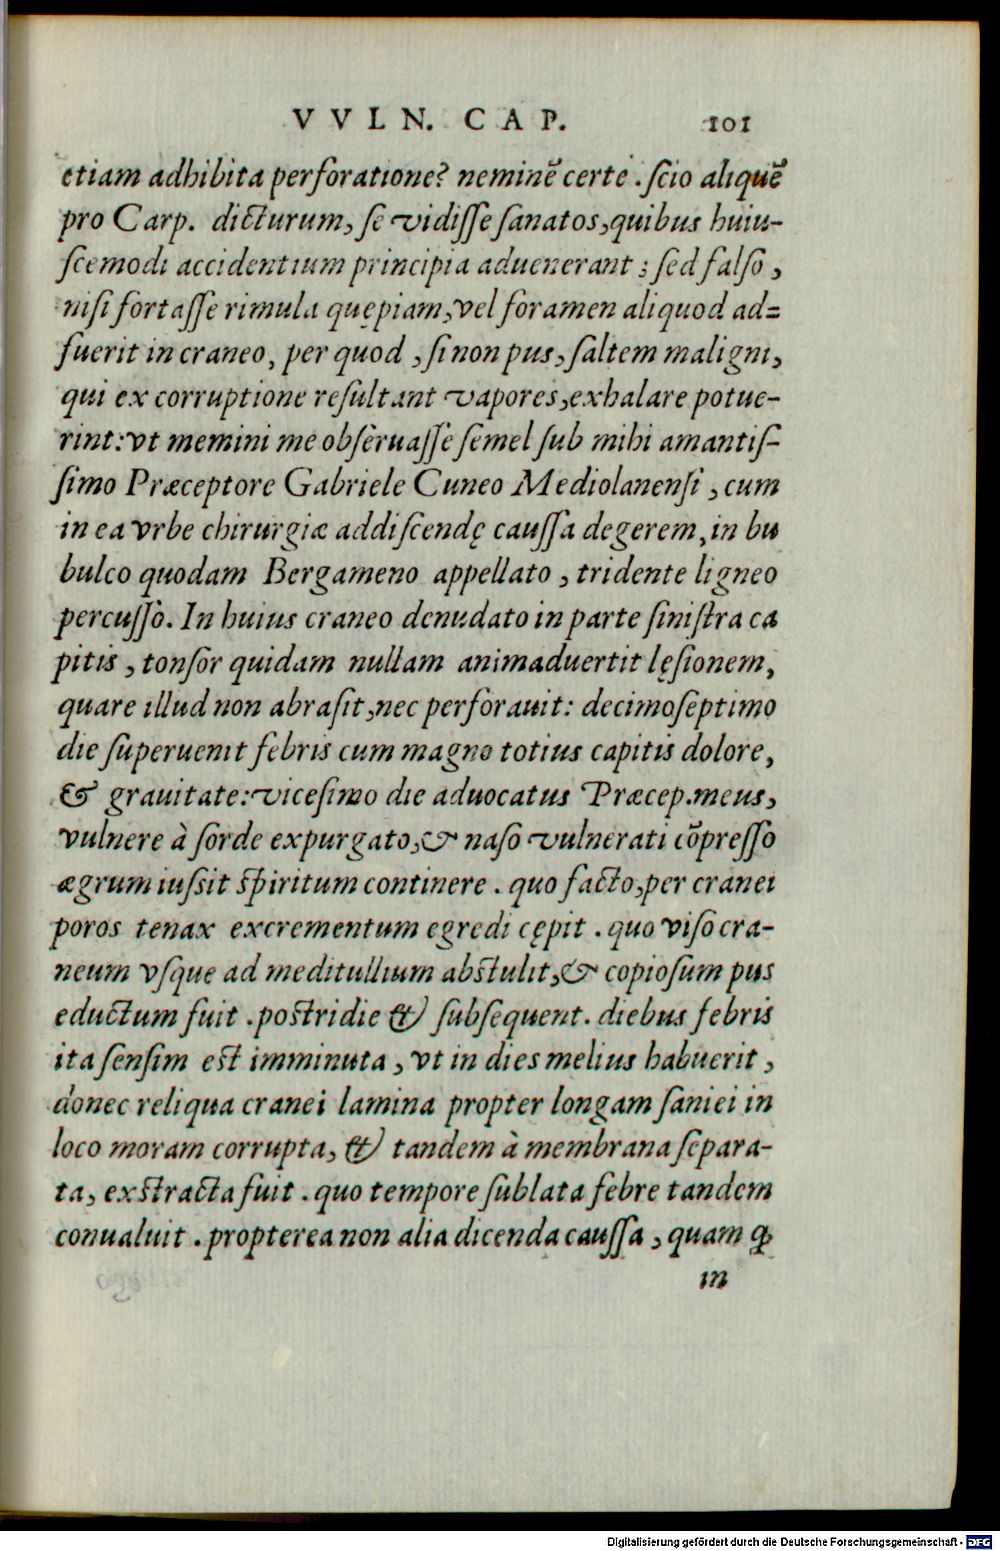 VVLN. CAP. 101
etiam adhibita perforatione? neminẽ certe. ſcio aliquẽ
pro Carp. dicturum, ſe vidiſſe ſanatos, quibus huiu-
ſcemodi accidentium principia aduenerant; ſed falſo,
niſi fortaſſe rimula quępiam, vel foramen aliquod ad-
fuerit in craneo, per quod, ſi non pus, ſaltem maligni,
qui ex corruptione reſultant vapores, exhalare potue-
rint: vt memini me obſeruaſſe ſemel ſub mihi amantiſ-
ſimo Præceptore Gabriele Cuneo Mediolanenſi, cum
in ea vrbe chirurgiæ addiſcendę cauſſa degerem, in bu
bulco quodam Bergameno appellato, tridente ligneo
percuſſo. In huius craneo denudato in parte ſiniſtra ca
pitis, tonſor quidam nullam animaduertit lęſionem,
quare illud non abraſit, nec perforauit: decimoſeptimo
die ſuperuenit febris cum magno totius capitis dolore,
& grauitate: viceſimo die aduocatus Præcep. meus,
vulnere à ſorde expurgato, & naſo vulnerati cõpreſſo
ægrum iuſsit ſpiritum continere. quo facto, per cranei
poros tenax excrementum egredi cępit. quo viſo cra-
neum vſque ad meditullium abſtulit, & copioſum pus
eductum fuit. poſtridie & ſubſequent. diebus febris
ita ſenſim eſt imminuta, vt in dies melius habuerit,
donec reliqua cranei lamina propter longam ſaniei in
loco moram corrupta, & tandem à membrana ſepara-
ta, exſtracta fuit. quo tempore ſublata febre tandem
conualuit. propterea non alia dicenda cauſſa, quam ꝙ
in
Digitalisierung gefördert durch die Deutsche Forschungsgemeinschaft - DFG